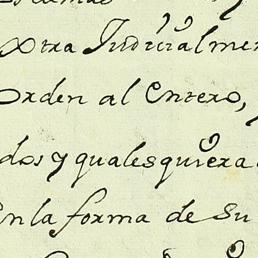 extra Judicialmen
Orden al Entero,
dos y qualesquiera
en la forma de su